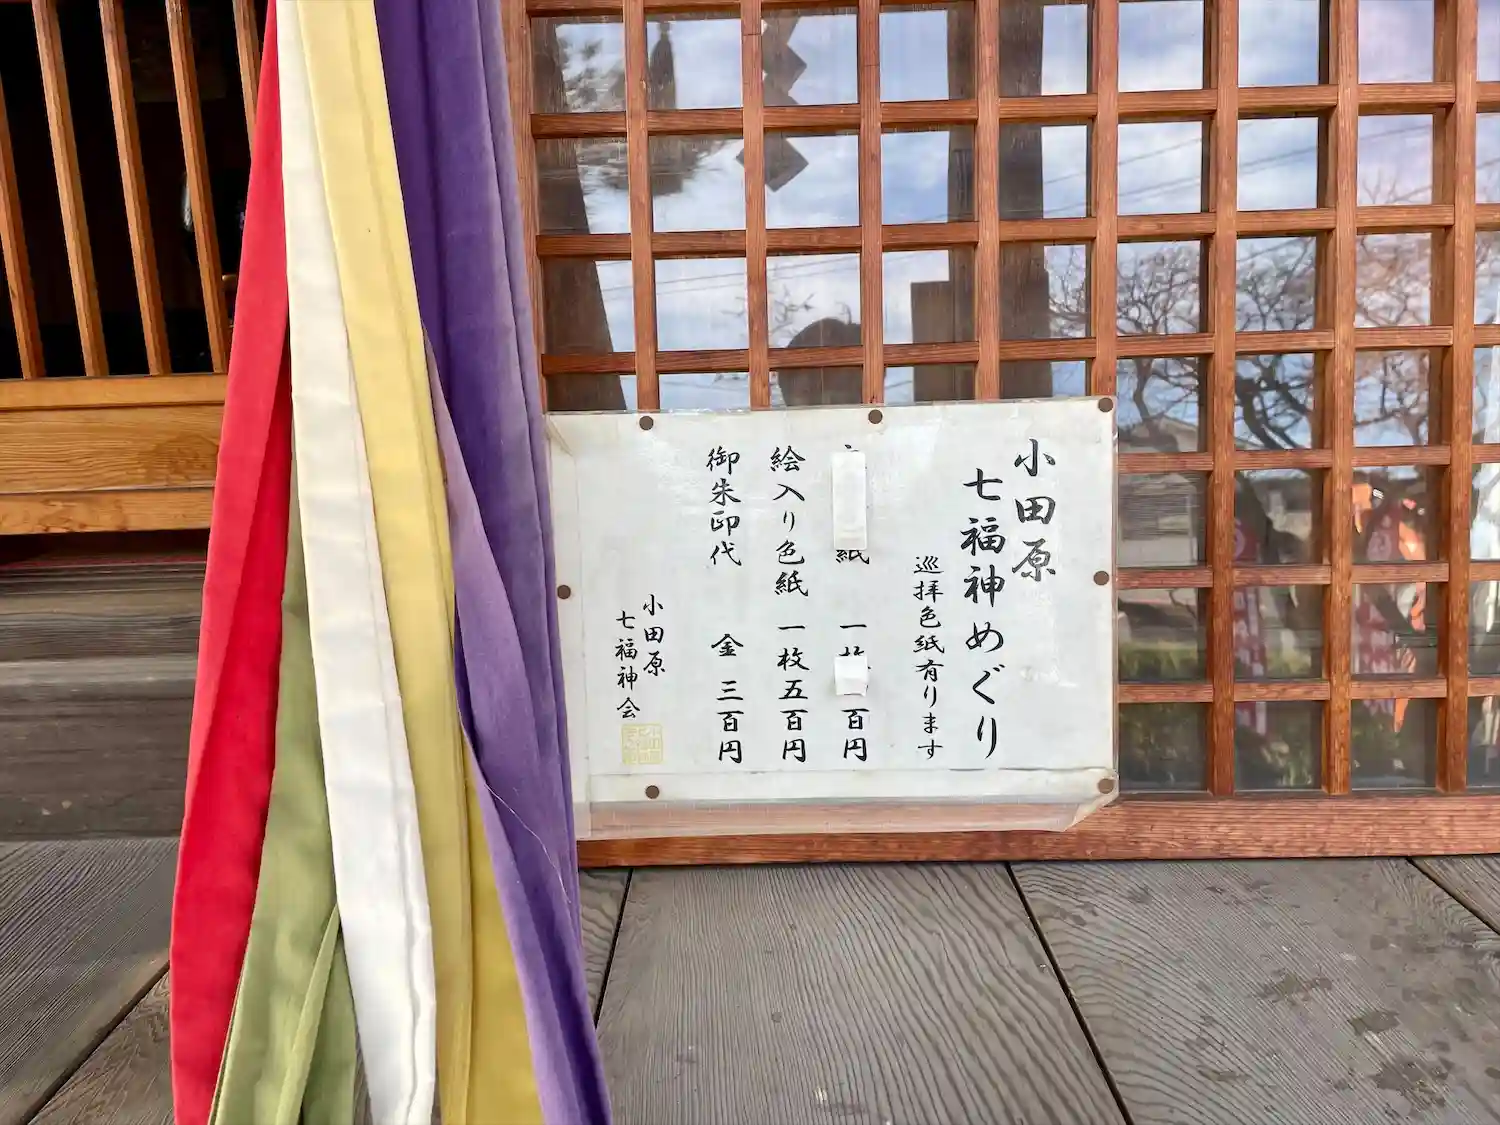 小田原
七福神めぐり
巡拝色紙有ります
紙 一枚 百円
絵入り色紙 一枚五百円
御朱印代 金 三百円
小田原
七福神会